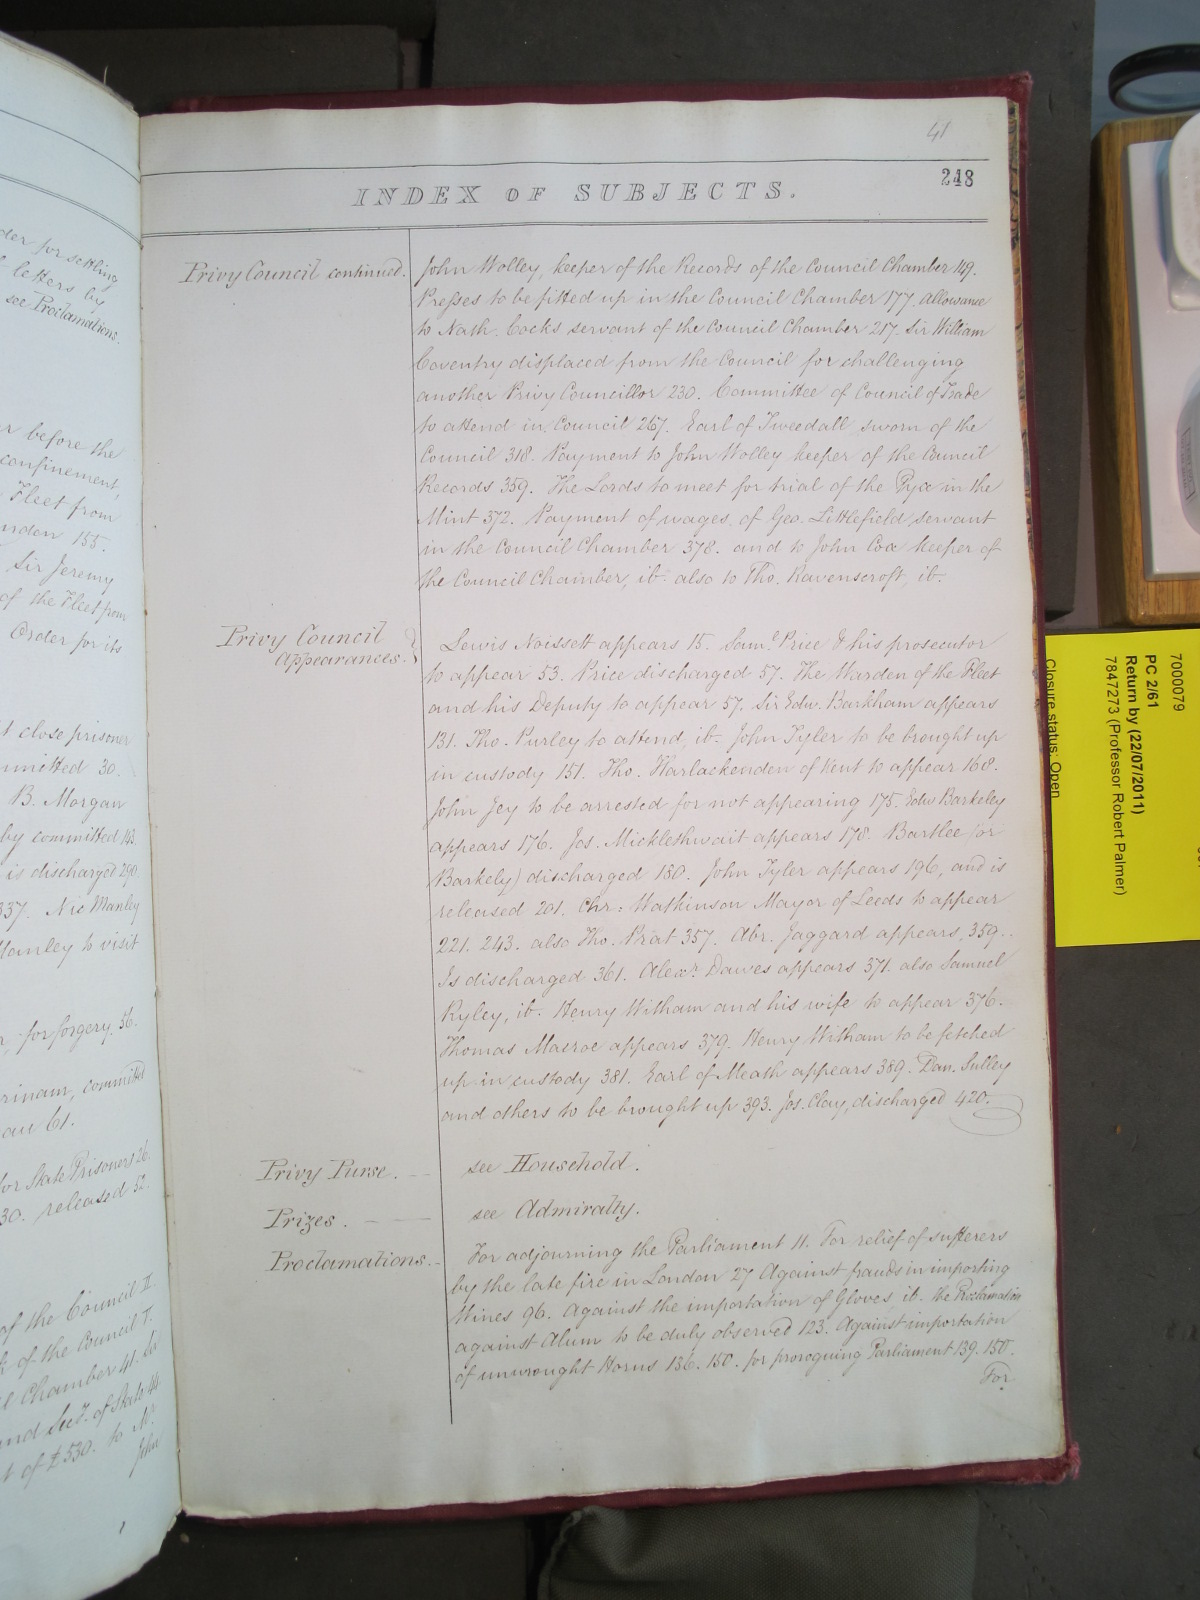 der for settling
letters by
see Proclamations.
r before the
confinement,
Fleet from
ndon 155.
Sir Jeremy
of the Fleet from
Order for its
t close prisoner
mmitted 30.
B. Morgan
by committed 143.
is discharged 290.
337. Nic Manley
Manley to visit
for forgery. 56.
rinam, committed
au 61.
for State Prisoners 26.
30. released 52.
of the Council II.
of the Council I.
l Chamber 41. to
and Sec.y of State 44.
t of £530. to Mr.
John
41
248
INDEX OF SUBJECTS.
Privy Council continued.
John Wolley, keeper of the Records of the Council Chamber 149.
Presses to be fitted up in the Council Chamber 177. Allowance
to Nath. Cocks servant of the Council Chamber 217. Sir William
Coventry displaced from the Council for challenging
another Privy Councillor 230. Committee of Council of Trade
to attend in Council 267. Earl of Tweedall sworn of the
Council 318. Payment to John Wolley keeper of the Council
Records 359. The Lords to meet for trial of the Pyx in the
Mint 372. Payment of wages, of Geo. Littlefield servant
in the Council Chamber 378. and to John Cox keeper of
the Council Chamber, ib. also to Tho. Ravenscroft, ib.
Privy Council
Appearances.
Lewis Noissett appears 15. Saml. Price & his prosecutor
to appear 53. Price discharged 57. The Warden of the Fleet
and his Deputy to appear 57. Sir Edw. Barkham appears
131. Tho. Purley to attend, ib. John Tyler to be brought up
in custody 151. Tho. Harlackenden of Kent to appear 168.
John Jey to be arrested for not appearing 175. Edw Barkeley
appears 176. Jos. Micklethwait appears 178. Bartlee (or
Barkely) discharged 180. John Tyler appears 196, and is
released 201. Chr: Watkinson Mayor of Leeds to appear
221. 243. also Tho. Prat 357. Abr. Jaggard appears, 359.
Is discharged 361. Alexr. Dawes appears 371. also Samuel
Ryley, ib. Henry Witham and his wife to appear 376.
Thomas Macroe appears 379. Henry Witham to be fetched
up in custody 381. Earl of Meath appears 389. Dan. Sulley
and others to be brought up 393. Jos. Clay, discharged 420.
Privy Purse.
see Household.
Prizes.
see Admiralty.
Proclamations.
For adjourning the Parliament 11. For relief of sufferers
by the late fire in London 27 Against frauds in importing
Wines 96. Against the importation of Gloves, ib. the Proclamation
against Alum to be duly observed 123. Against importation
of unwrought Horns 136. 150. for proroguing Parliament 139. 150.
For
7000079
PC 2/61
Return by (22/07/2011)
7847273 (Professor Robert Palmer)
Closure status: Open